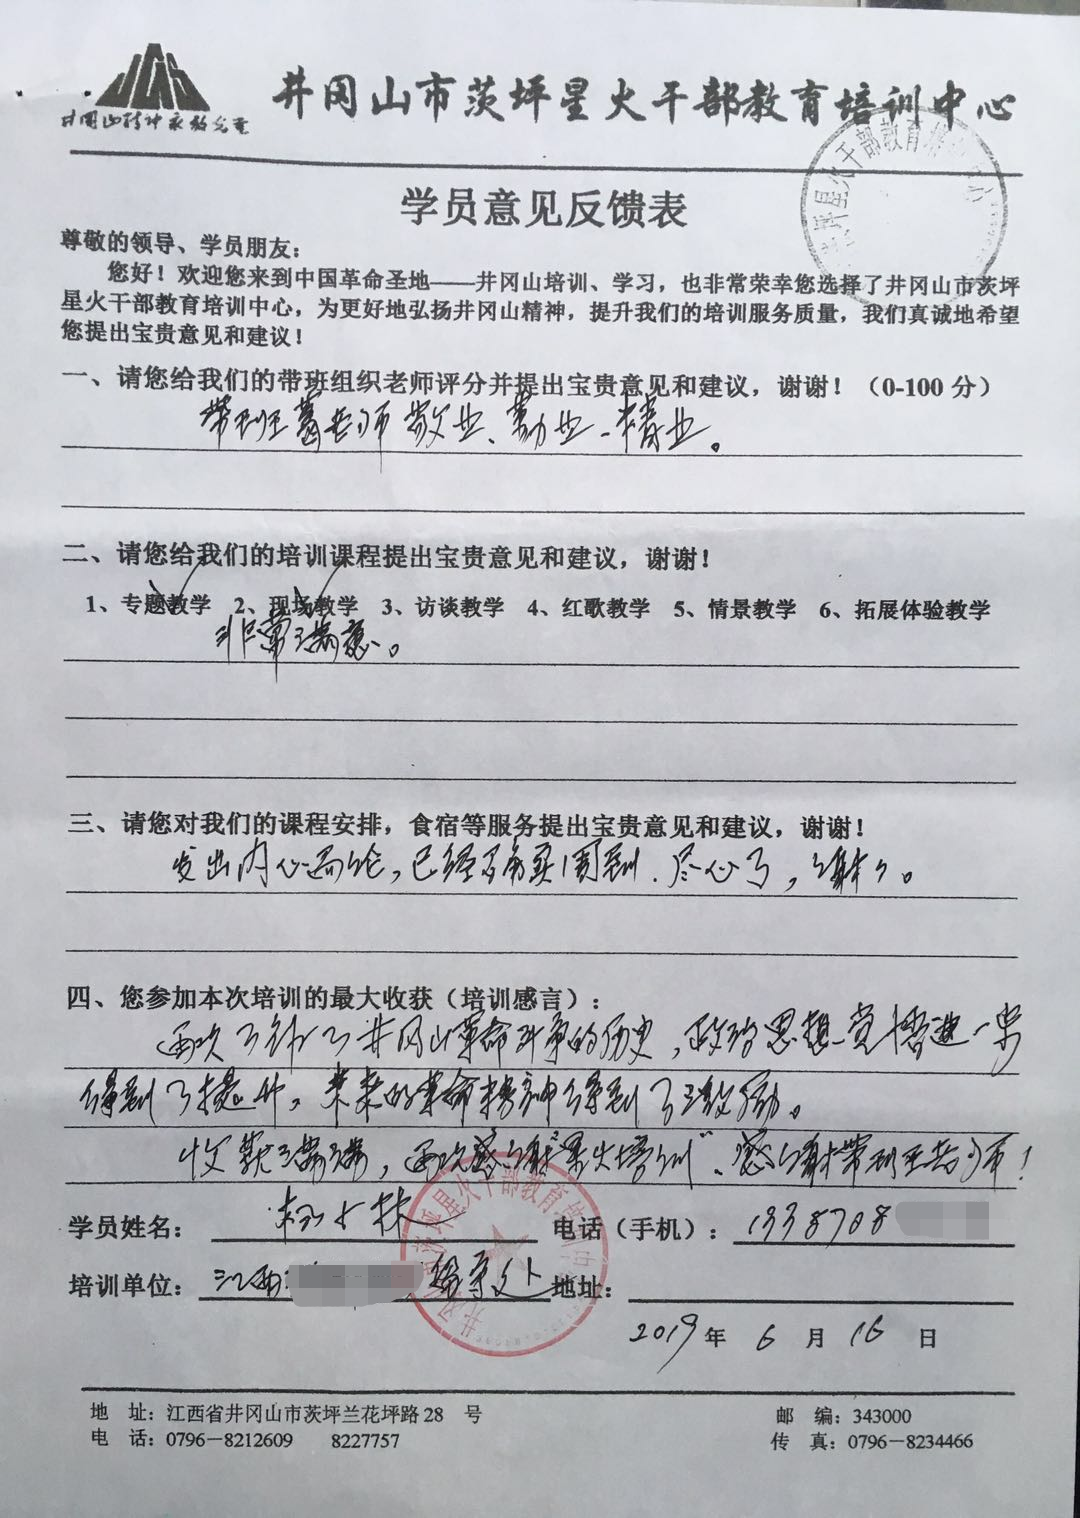 井冈山市茨坪星火干部教育培训中心
学员意见反馈表
尊敬的领导、学员朋友：
您好！欢迎您来到中国革命圣地——井冈山培训、学习，也非常荣幸您选择了井冈山市茨坪
星火干部教育培训中心，为更好地弘扬井冈山精神，提升我们的培训服务质量，我们真诚地希望
您提出宝贵意见和建议！
一、请您给我们的带班组织老师评分并提出宝贵意见和建议，谢谢！（0-100 分）
带班老师敬业、勤业、精业。
二、请您给我们的培训课程提出宝贵意见和建议，谢谢！
1、专题教学 2、现场教学 3、访谈教学 4、红歌教学 5、情景教学 6、拓展体验教学
非常满意。
三、请您对我们的课程安排，食宿等服务提出宝贵意见和建议，谢谢！
发出内心而论，已经周到、尽心了，谢谢。
四、您参加本次培训的最大收获（培训感言）：
再次了解了井冈山革命斗争的历史，政治思想觉悟进一步
得到了提升，未来的革命精神得到了激励。
收获满满，再次感谢"星火培训"、感谢带班老师！
学员姓名： 电话（手机）：1338708
培训单位：江西 地址：
2019 年 6 月 16 日
地 址：江西省井冈山市茨坪兰花坪路 28 号 邮 编：343000
电 话：0796－8212609 8227757 传 真：0796－8234466